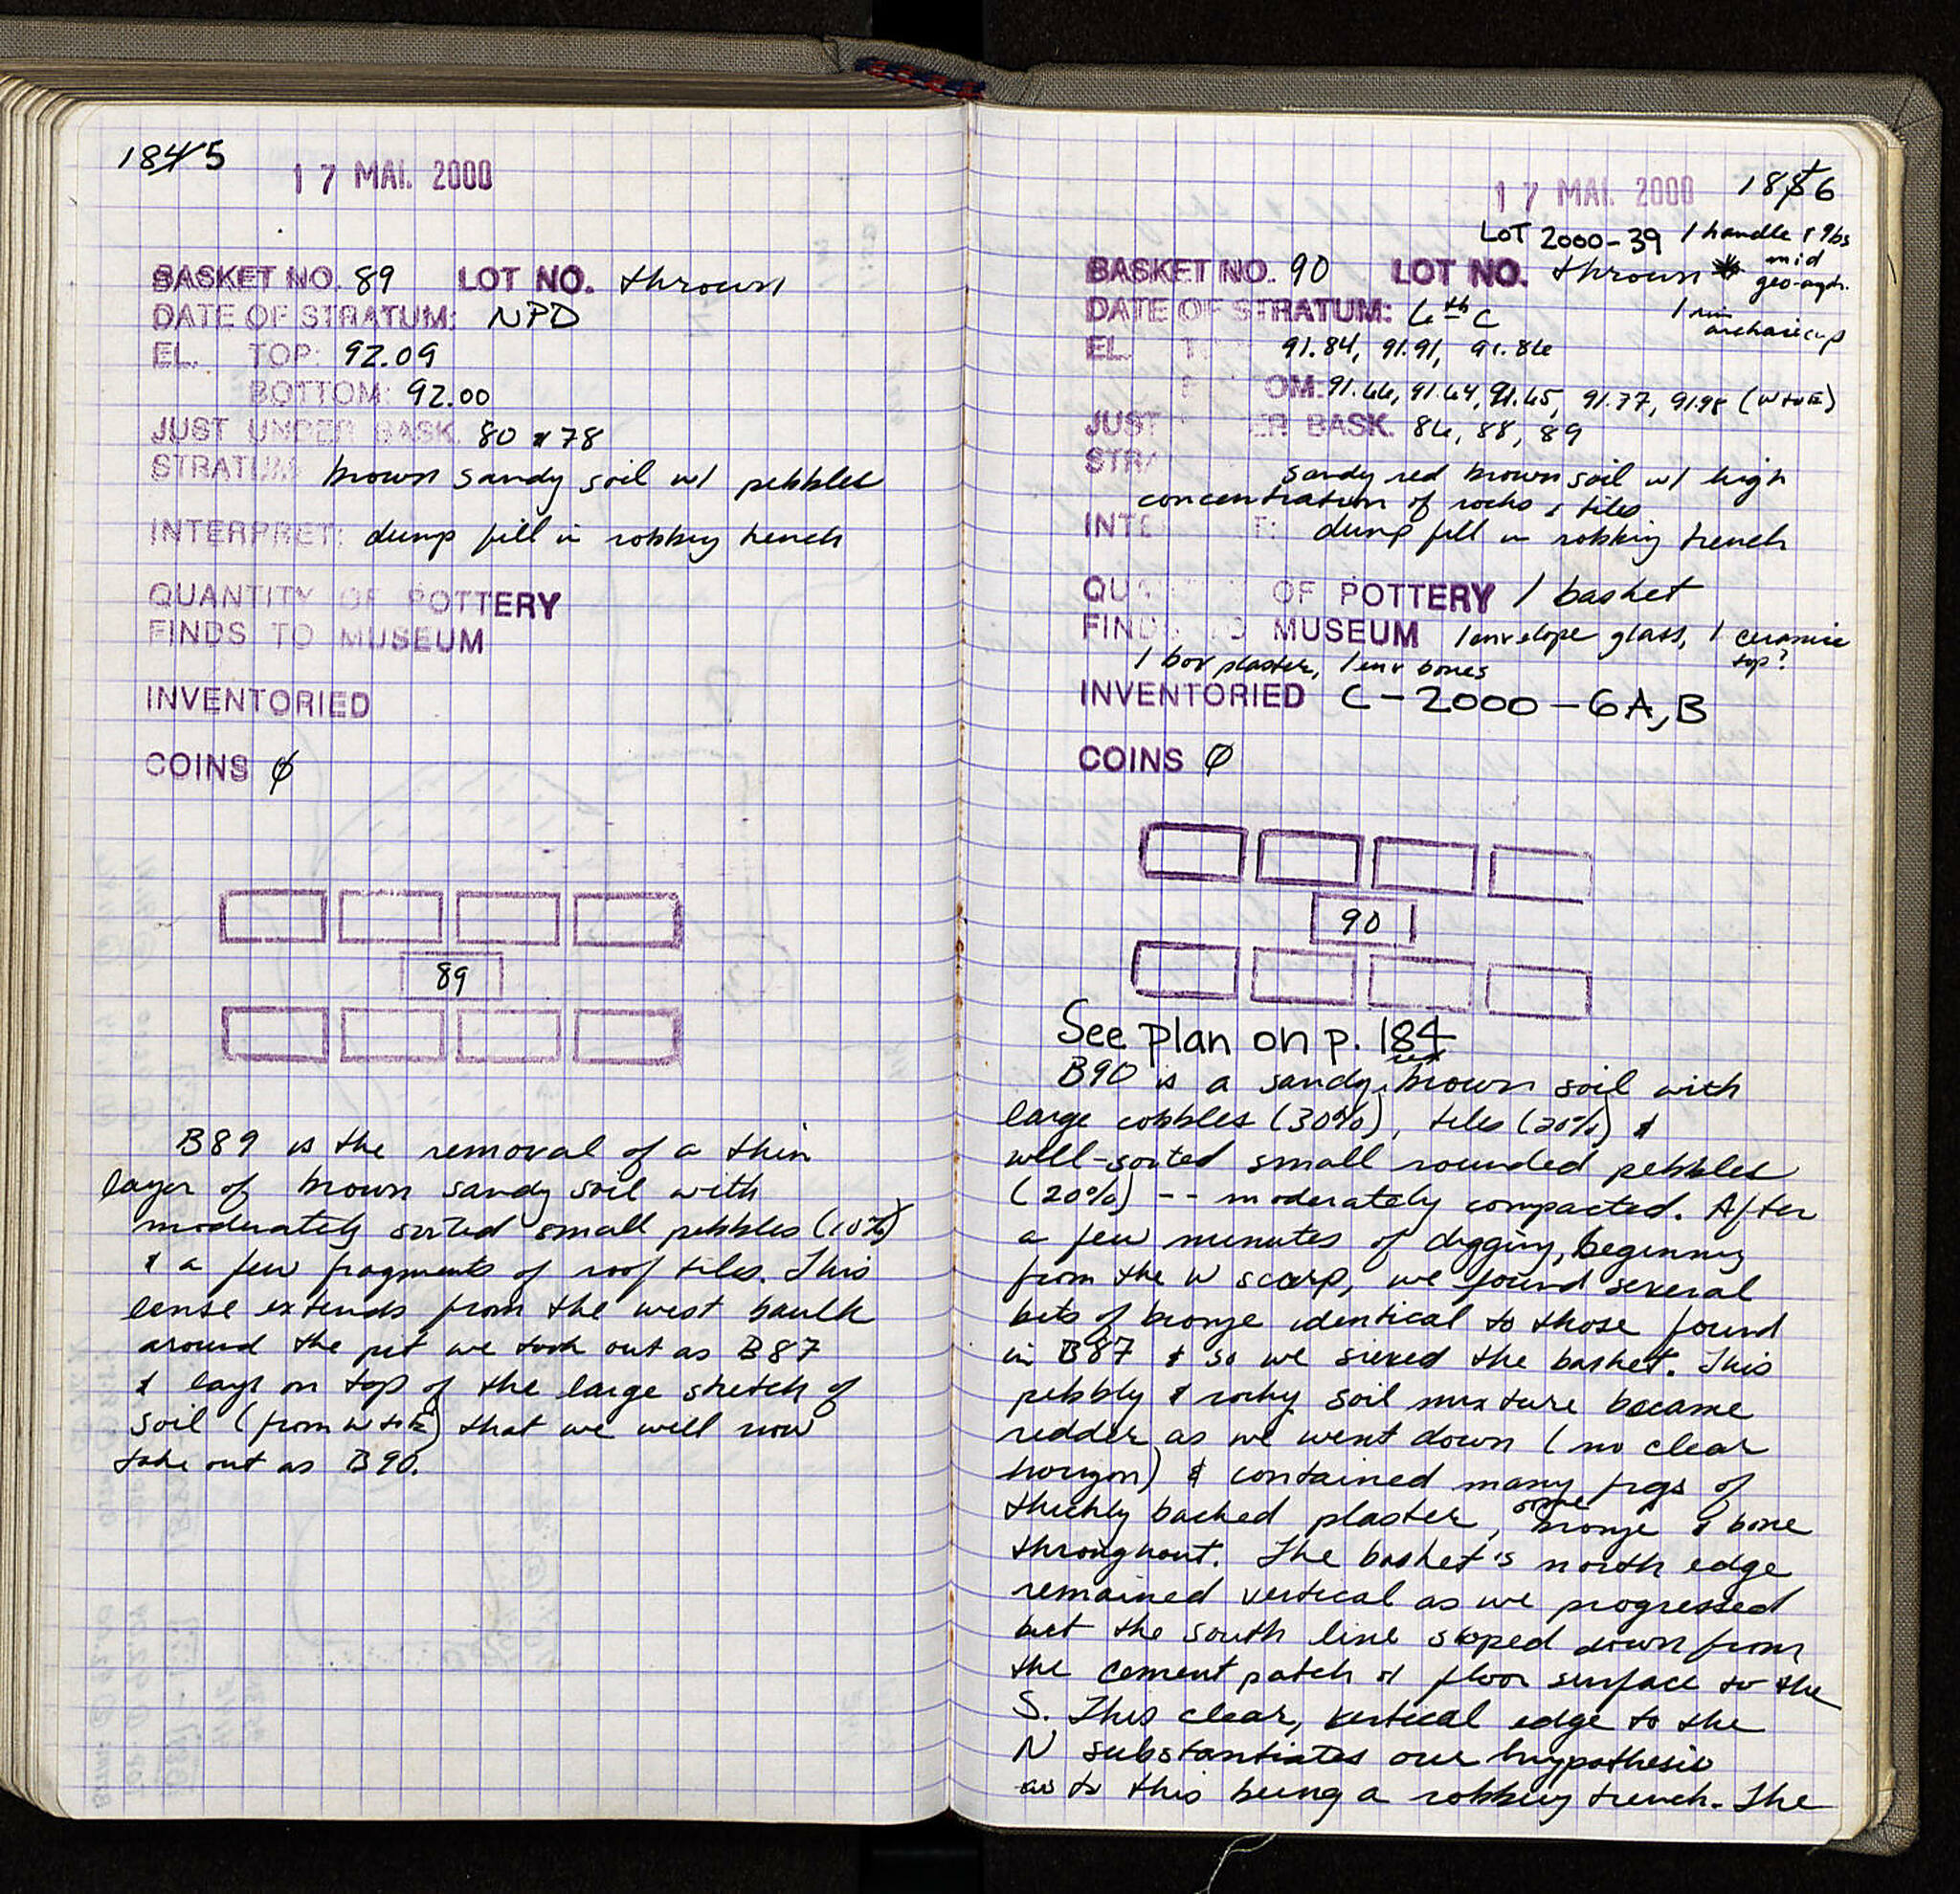 1845
17 MAI. 2000
BASKET NO. 89 LOT NO. thrown
DATE OF STRATUM: NPD
EL. TOP: 92.09
BOTTOM: 92.00
JUST UNDER BASK. 80 & 78
STRATUM brown sandy soil w/ pebbles
INTERPRET: dump fill in robbing trench
QUANTITY OF POTTERY
FINDS TO MUSEUM
INVENTORIED
COINS ∅
89
B89 is the removal of a thin
layer of brown sandy soil with
moderately sorted small pebbles (10%)
& a few fragments of roof tiles. This
lense extends from the west baulk
around the pit we took out as B87
& lays on top of the large stretch of
soil (from W to E) that we will now
take out as B90.
17 MAI. 2000 186
LOT 2000-39 1 handle & 9bs
mid
geo-
BASKET NO. 90 LOT NO. thrown
DATE OF STRATUM: 6th C
1 rim
archaic cup
EL. 91.84, 91.91, 91.86
OM: 91.66, 91.64, 91.65, 91.77, 91.98 (W to E)
JUST ER BASK. 86, 88, 89
STRA sandy red brown soil w/ high
concentration of rocks & tiles
INTE T: dump fill in robbing trench
QU OF POTTERY 1 basket
FIND TO MUSEUM 1 envelope glass, 1 ceramic
top?
1 box plaster, 1 env bones
INVENTORIED C-2000-6A,B
COINS ∅
90
See plan on p. 184
B90 is a sandy, red brown soil with
large cobbles (30%), tiles (20%) &
well-sorted small rounded pebbles
(20%) -- moderately compacted. After
a few minutes of digging, beginning
from the W scarp, we found several
bits of bronze identical to those found
in B87 & so we sieved the basket. This
pebbly & rocky soil mixture became
redder as we went down (no clear
horizon) & contained many frgs of
thickly backed plaster, some bronze & bone
throughout. The basket's north edge
remained vertical as we progressed
but the south line sloped down from
the cement patch & floor surface to the
S. This clear, vertical edge to the
N substantiates our hypothesis
as to this being a robbing trench. The